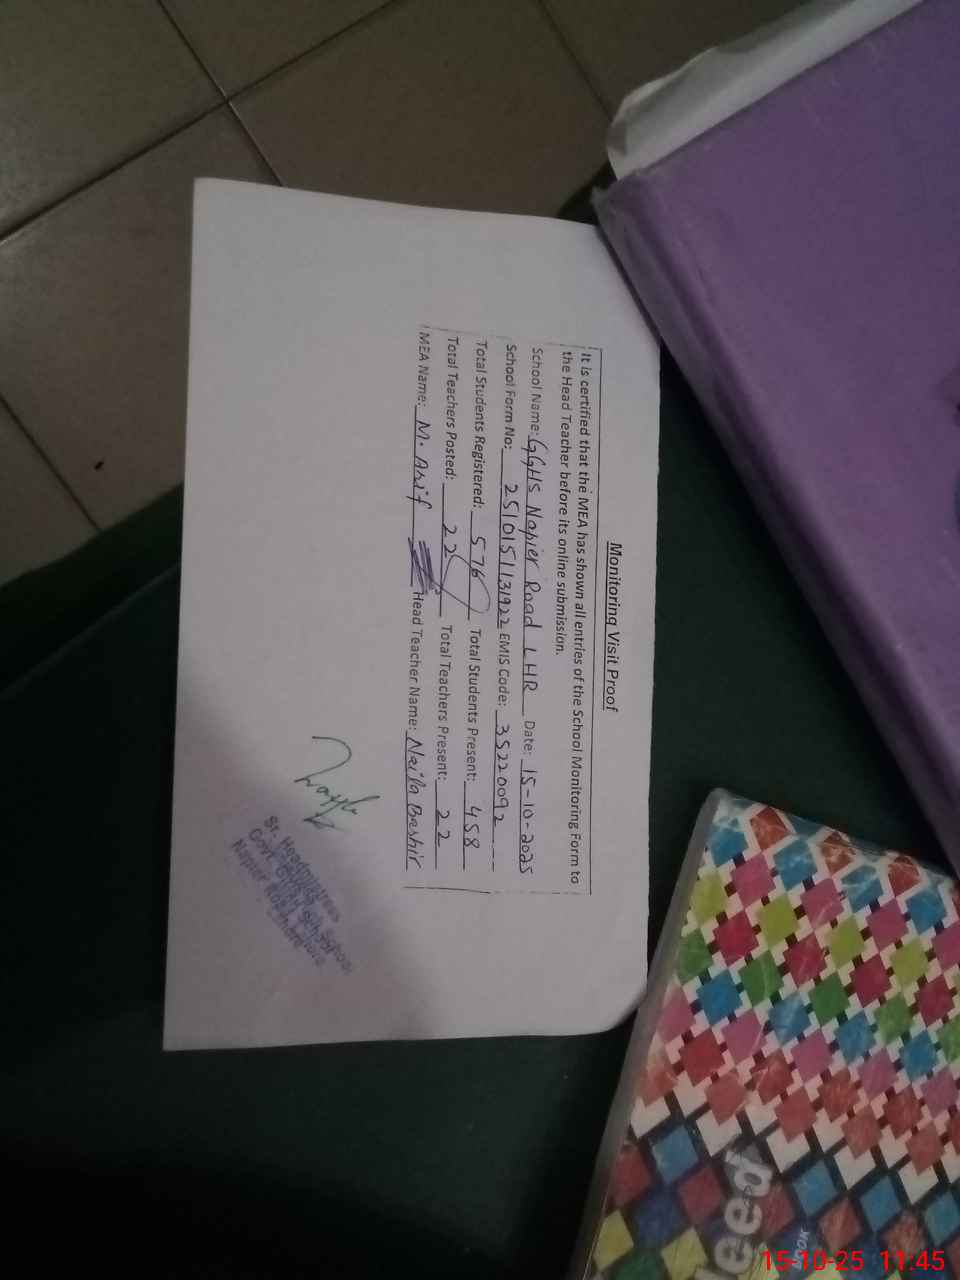 Monitoring Visit Proof
It is certified that the MEA has shown all entries of the School Monitoring Form to
the Head Teacher before its online submission.
School Name: GGHS Napier Road LHR Date: 15-10-2025
School Form No: 2510151131922 EMIS Code: 35220092
Total Students Registered: 576 Total Students Present: 458
Total Teachers Posted: 22 Total Teachers Present: 22
MEA Name: M. Arif Head Teacher Name: Naila Bashir
Sr. Headmistress
Govt. Girls High School
Napier Road Lahore
15-10-25 11:45